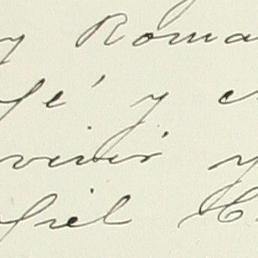 y Roma
fé y
vivir y
fiel